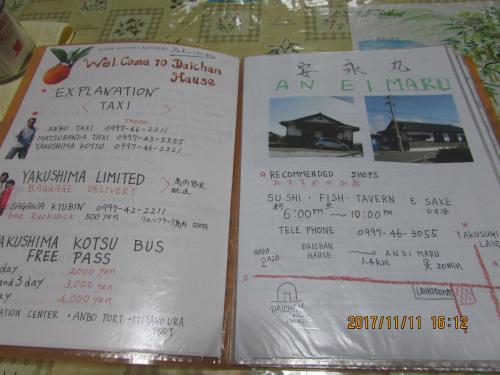 Yakushima
Wel.Come to Daichan
Hause
EXPLANATION
< TAXI >
Phone
ANBO TAXI 0997-46-2311
MATSUBANDA TAXI 0997-43-5555
YAKUSHIMA KOTSU 0997-46-2321
YAKUSHIMA LIMITED
BAGGAGE DELIVERY
島内限定
配送
SAGAWA KYUBIN 0997-42-2211
one Rucksack 500 yen (リュックサック島内 500円)
YAKUSHIMA KOTSU BUS
FREE PASS
day 2000 yen
and 3 day 3,000 yen
day 4,000 yen
ATION CENTER ・ANBO PORT・MIYANOURA
PORT
安永丸
AN EI MARU
☆ RECOMMENDED SHOPS
おすすめのお店
SUSHI・FISH・TAVERN & SAKE
日本酒
6:00PM ～ 10:00PM
TELE PHONE 0997-46-3055
YAKUSUGI
LAND
DAICHAN
HAUSE → ANEI MARU
1.4KM 20min
S
LAUNDROMAT
DAICHAN
HAUSE
2017/11/11 16:12